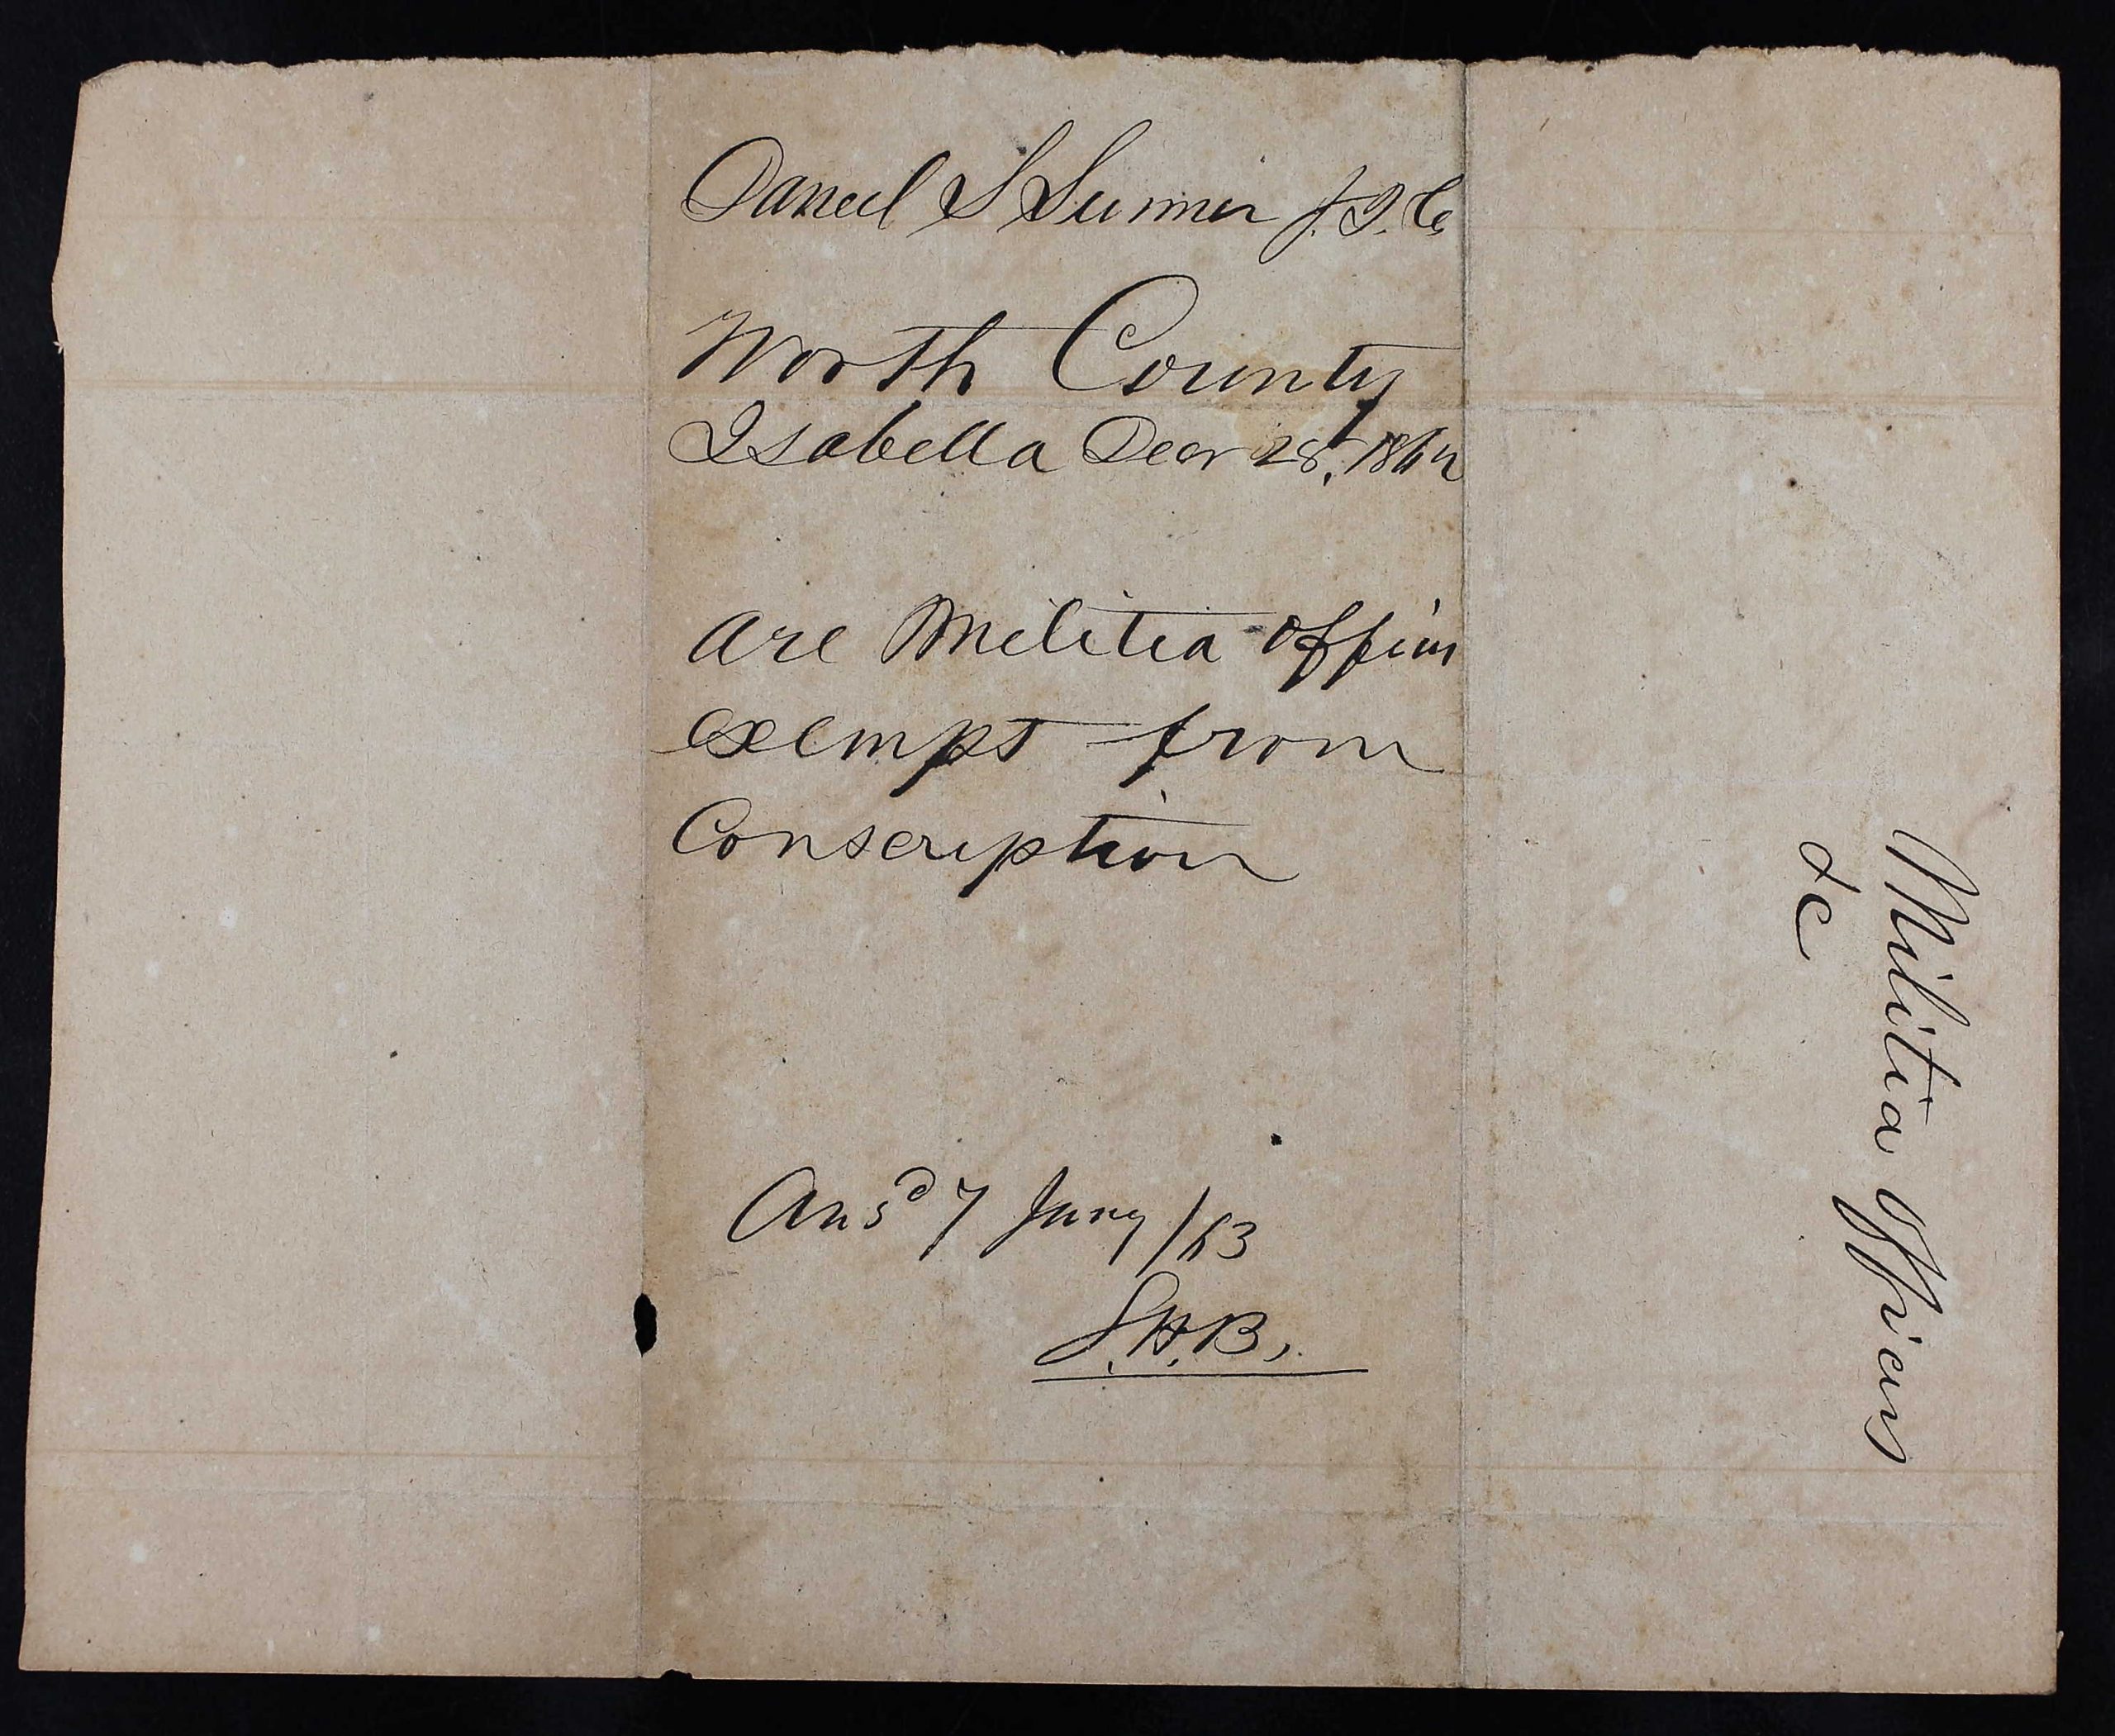 Daniel S Sumner J.I.C.
Worth County
Isabella Decr 28, 1862
are Militia officers
exempt from
Conscription
Ansd 7 Jany /63
S.H.B,
Militia Officers
&c